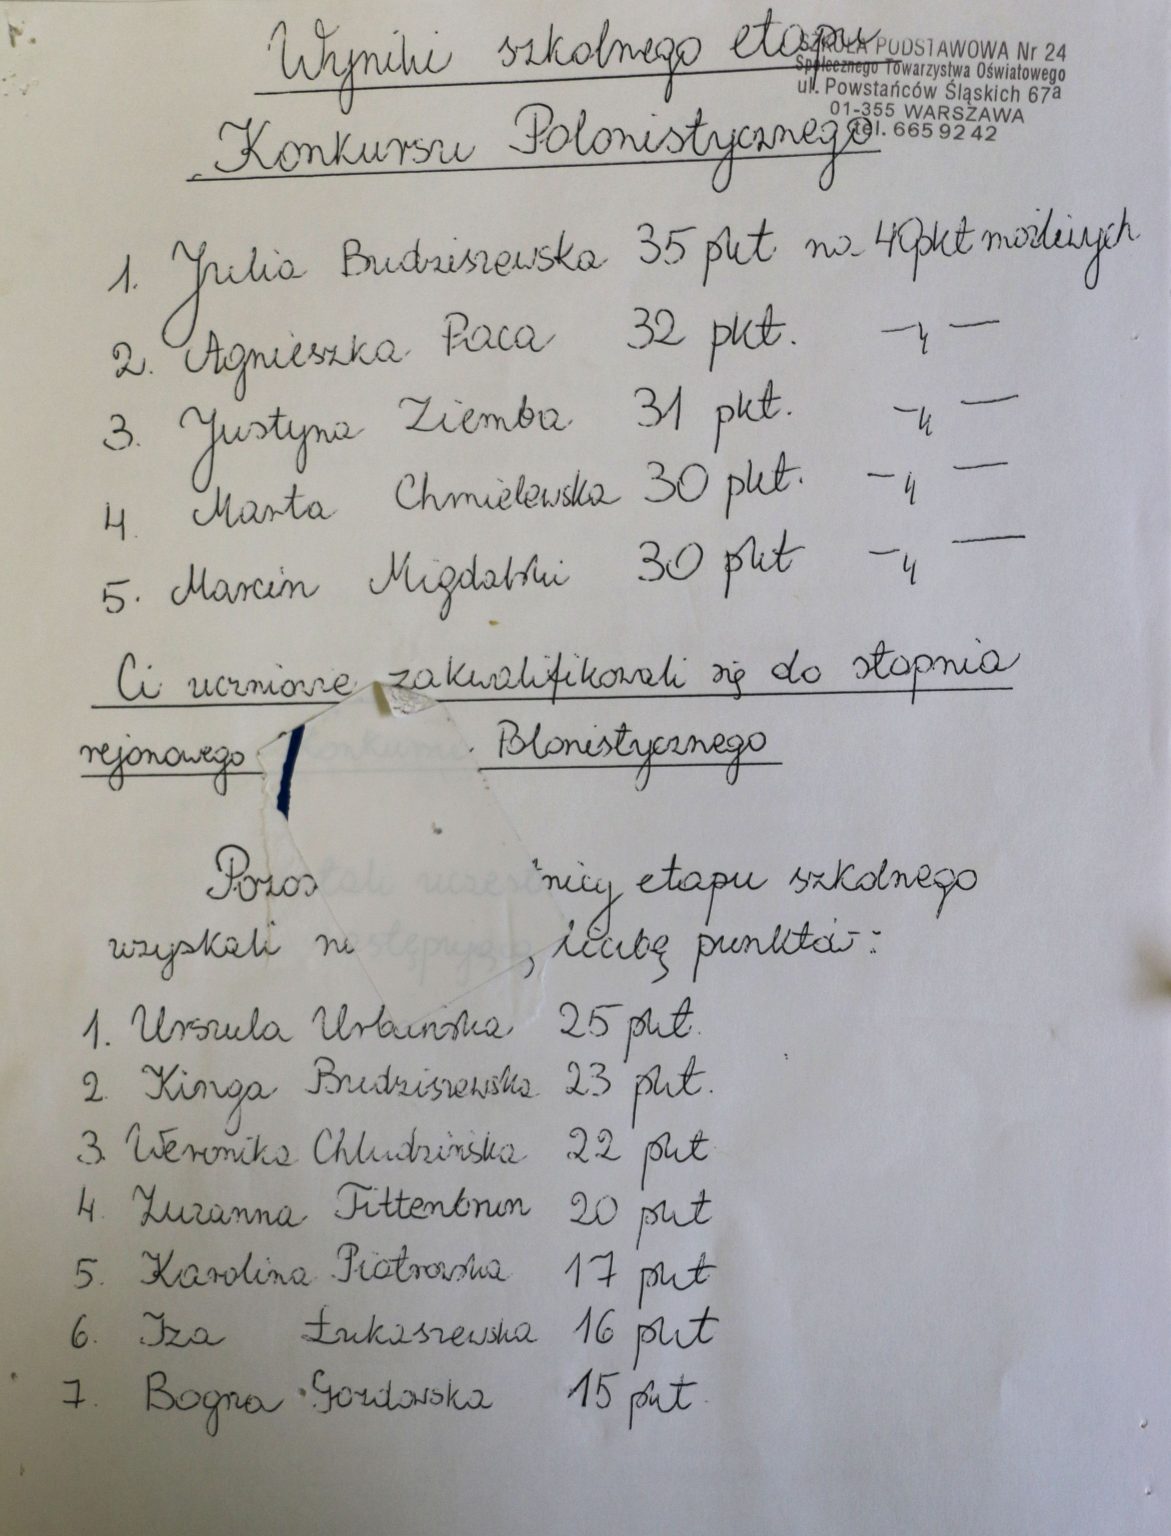 Wyniki szkolnego etapu
SZKOŁA PODSTAWOWA Nr 24
Społecznego Towarzystwa Oświatowego
ul. Powstańców Śląskich 67a
01-355 WARSZAWA
tel. 665 92 42
Konkursu Polonistycznego
1. Julia Budziszewska 35 pkt na 40pkt możliwych
2. Agnieszka Paca 32 pkt. —„—
3. Justyna Ziemba 31 pkt. —„—
4. Marta Chmielewska 30 pkt. —„—
5. Marcin Migdalski 30 pkt —„—
Ci uczniowie zakwalifikowali się do stopnia
rejonowego Konkursu Polonistycznego
Pozostali uczestnicy etapu szkolnego
uzyskali następującą liczbę punktów:
1. Urszula Urbańska 25 pkt.
2. Kinga Budziszewska 23 pkt.
3. Weronika Chludzińska 22 pkt
4. Zuzanna Tittenbrun 20 pkt
5. Karolina Piotrowska 17 pkt
6. Iza Łukaszewska 16 pkt
7. Bogna Gozdowska 15 pkt.